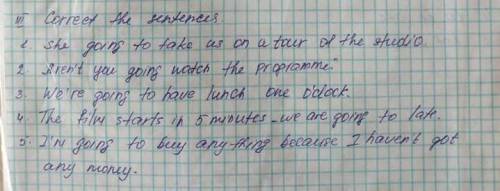 III Correct the sentences.
1. She going to take us on a tour of the studio.
2. Aren't you going watch the programme?
3. We're going to have lunch one o'clock.
4. The film starts in 5 minutes - we are going to late.
5. I'm going to buy anything because I haven't got
any money.